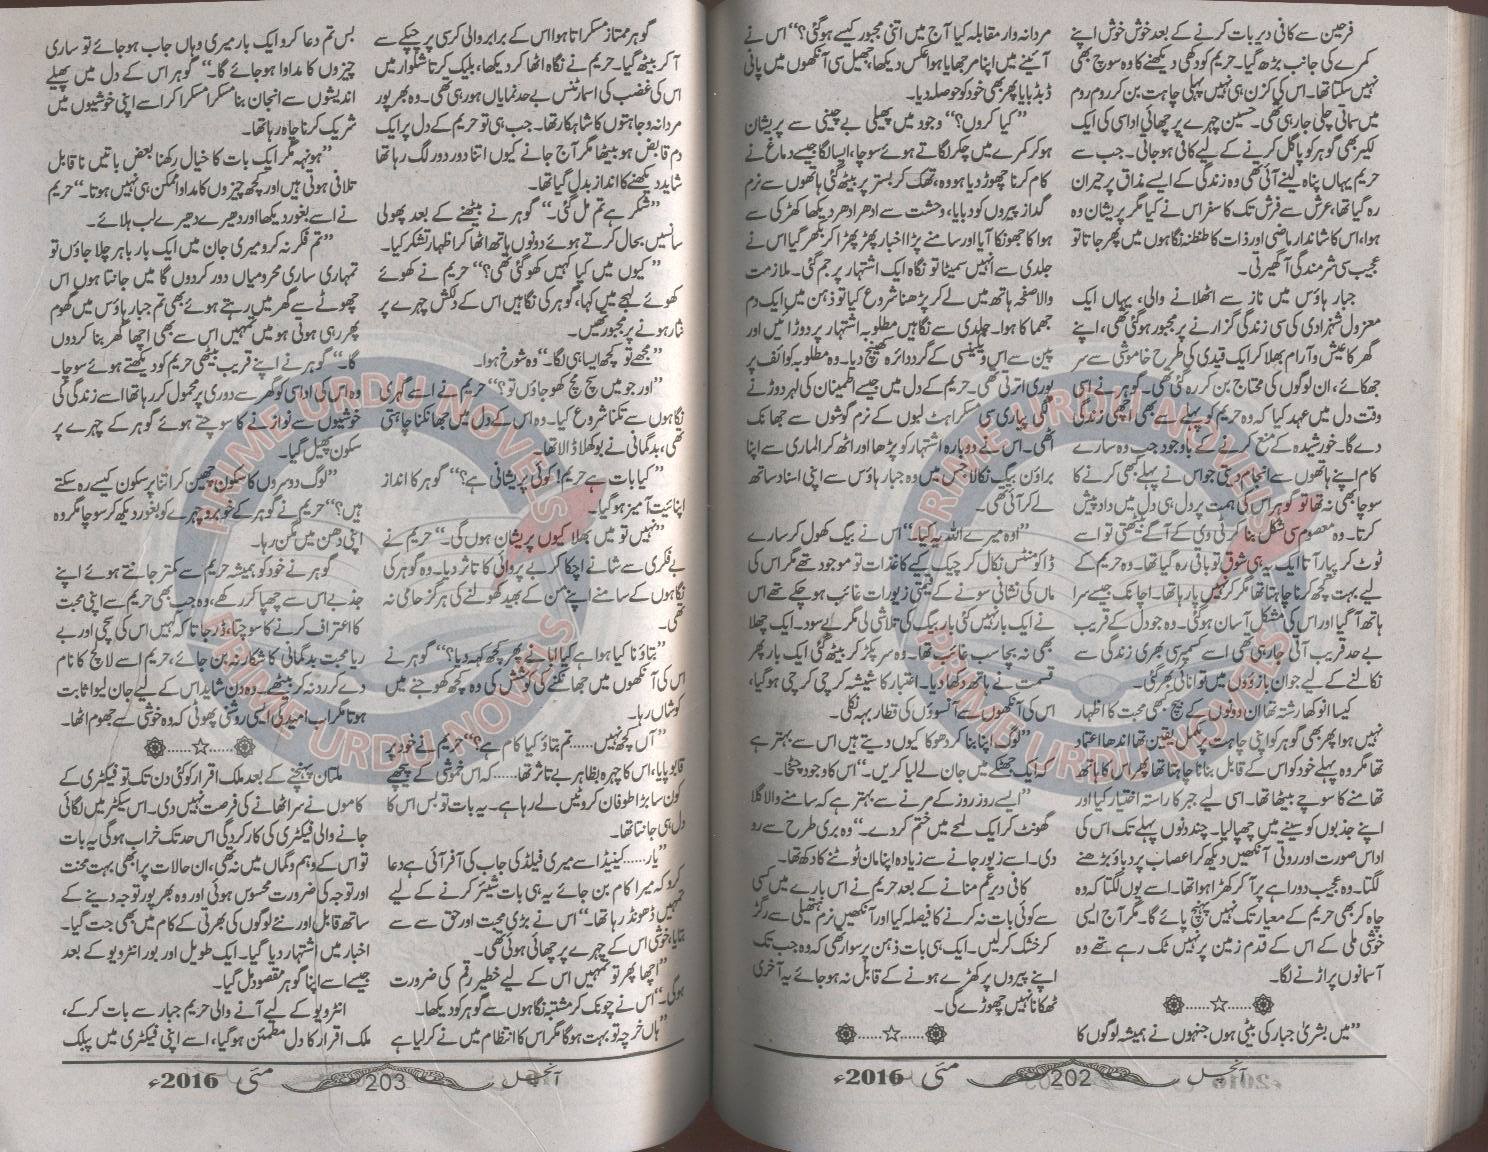 فرحین سے کافی دیر بات کرنے کے بعد خوش خوش اپنے
کمرے کی جانب بڑھ گیا۔ حریم کو دکھی دیکھنے کا وہ سوچ بھی
نہیں سکتا تھا۔ اس کی کزن ہی نہیں پہلی چاہت بن کر روم روم
میں سماتی چلی جا رہی تھی۔ حسین چہرے پر چھائی اداسی کی ایک
لکیر بھی گوہر کو پاگل کرنے کے لیے کافی ہو جاتی۔ جب سے
حریم یہاں پناہ لینے آئی تھی وہ زندگی کے ایسے مذاق پر حیران
رہ گیا تھا، عرش سے فرش تک کا سفر اس نے کیا مگر پریشان وہ
ہوا، اس کا شاندار ماضی اور ذات کا طنطنہ نگاہوں میں پھر جاتا تو
عجیب سی شرمندگی آ گھیرتی۔
جبار ہاؤس میں ناز سے اٹھلانے والی، یہاں ایک
معزول شہزادی کی سی زندگی گزارنے پر مجبور ہوگئی تھی، اپنے
گھر کا عیش و آرام بھلا کر ایک قیدی کی طرح خاموشی سے سر
جھکائے، ان لوگوں کی محتاج بن کر رہ گئی تھی۔ گوہر نے اسی
وقت دل میں عہد کیا کہ وہ حریم کو پہلے سے بھی اچھی زندگی
دے گا۔ خورشیدہ کے منع کرنے کے باوجود جب وہ سارے
کام اپنے ہاتھوں سے انجام دیتی جو اس نے پہلے کبھی کرنے کا
سوچا بھی نہ تھا تو گوہر اس کی ہمت پر دل ہی دل میں داد پیش
کرتا۔ وہ معصوم سی شکل بنا کر ٹی وی کے آگے بیٹھتی تو اسے
ٹوٹ کر پیار آتا ایک یہ ہی شوق تو باقی رہ گیا تھا۔ وہ حریم کے
لیے بہت کچھ کرنا چاہتا تھا مگر کر نہیں پا رہا تھا۔ اچانک جیسے سرا
ہاتھ آ گیا اور اس کی مشکل آسان ہوگئی۔ وہ جو دل کے قریب
بے حد قریب آتی جا رہی تھی اسے کسمپرسی بھری زندگی سے
نکالنے کے لیے جوان بازوؤں میں توانائی بھر گئی۔
کیسا انوکھا رشتہ تھا ان دونوں کے بیچ بھی محبت کا اظہار
نہیں ہوا پھر بھی گوہر کو اپنی چاہت پر مکمل یقین تھا اندھا اعتماد
تھا مگر وہ پہلے خود کو اس کے قابل بنانا چاہتا تھا پھر اس کا ہاتھ
تھامنے کا سوچے بیٹھا تھا۔ اسی لیے جبر کا راستہ اختیار کیا اور
اپنے جذبوں کو سینے میں چھپا لیا۔ چند دنوں پہلے تک اس کی
اداس صورت اور روتی آنکھیں دیکھ کر اعصاب پر دباؤ بڑھنے
لگتا۔ وہ عجیب دوراہے پر آ کر کھڑا ہوا تھا۔ اسے یوں لگتا کہ وہ
چاہ کر بھی حریم کے معیار تک نہیں پہنچ پائے گا۔ مگر آج ایسی
خوشی ملی کے اس کے قدم زمین پر نہیں ٹک رہے تھے وہ
آسمانوں پر اڑنے لگا۔
......☆......
”میں بشریٰ جبار کی بیٹی ہوں جنہوں نے ہمیشہ لوگوں کا
مردانہ وار مقابلہ کیا آج میں اتنی مجبور کیسے ہوگئی؟“ اس نے
آئینے میں اپنا مرجھایا ہوا عکس دیکھا، جھیل سی آنکھوں میں پانی
ڈبڈبایا پھر بھی خود کو حوصلہ دیا۔
”کیا کروں؟“ وجود میں پھیلی بے چینی سے پریشان
ہو کر کمرے میں چکر لگاتے ہوئے سوچا، ایسا لگا جیسے دماغ نے
کام کرنا چھوڑ دیا ہو وہ، تھک کر بستر پر بیٹھ گئی ہاتھوں سے نرم
گداز پیروں کو دبایا، وحشت سے ادھر ادھر دیکھا کھڑکی سے
ہوا کا جھونکا آیا اور سامنے پڑا اخبار پھڑ پھڑا کر بکھر گیا اس نے
جلدی سے انہیں سمیٹا تو نگاہ ایک اشتہار پر جم گئی۔ ملازمت
والا صفحہ ہاتھ میں لے کر پڑھنا شروع کیا تو ذہن میں ایک دم
جھماکا ہوا۔ جلدی سے نگاہیں مطلوبہ اشتہار پر دوڑائیں اور
پین سے اس ویکینسی کے گرد دائرہ کھینچ دیا۔ وہ مطلوبہ کوائف پر
پوری اترتی تھی۔ حریم کے دل میں جیسے اطمینان کی لہر دوڑنے
لگی پیاری سی مسکراہٹ لبوں کے نرم گوشوں سے جھانک
اٹھی۔ اس نے دوبارہ اشتہار کو پڑھا اور اٹھ کر الماری سے اپنا
براؤن بیگ نکالا جس میں وہ جبار ہاؤس سے اپنی اسناد ساتھ
لے کر آئی تھی۔
”اوہ میرے اللہ یہ کیا۔“ اس نے بیگ کھول کر سارے
ڈاکومنٹس نکال کر چیک کیے کاغذات تو موجود تھے مگر اس کی
ماں کی نشانی سونے کے قیمتی زیورات غائب ہو چکے تھے اس
نے ایک بار نہیں کئی بار بیگ کی تلاشی لی مگر بے سود۔ ایک چھلا
بھی نہ بچا سب غائب تھا۔ وہ سر پکڑ کر بیٹھ گئی ایک بار پھر
قسمت نے ہاتھ دکھا دیا۔ اعتبار کا شیشہ کرچی کرچی ہو گیا،
اس کی آنکھوں سے آنسوؤں کی قطار بہہ نکلی۔
”لوگ اپنا بنا کر دھوکا کیوں دیتے ہیں اس سے بہتر ہے
کہ ایک جھٹکے میں جان لے لیا کریں۔“ اس کا وجود چیخا۔
”ایسے روز روز کے مرنے سے بہتر ہے کہ سامنے والا گلا
گھونٹ کر ایک لمحے میں ختم کر دے۔“ وہ بری طرح سے رو
دی۔ اسے زیور جانے سے زیادہ اپنا مان ٹوٹنے کا دکھ تھا۔
کافی دیر غم منانے کے بعد حریم نے اس بارے میں کسی
سے کوئی بات نہ کرنے کا فیصلہ کیا اور آنکھیں نرم ہتھیلی سے رگڑ
کر خشک کر لیں۔ ایک ہی بات ذہن پر سوار تھی کہ وہ جب تک
اپنے پیروں پر کھڑے ہونے کے قابل نہ ہو جائے یہ آخری
ٹھکانا نہیں چھوڑے گی۔
......☆......
آنچل 202 مئی 2016ء
گوہر ممتاز مسکراتا ہوا اس کے برابر والی کرسی پر چپکے سے
آ کر بیٹھ گیا۔ حریم نے نگاہ اٹھا کر دیکھا، بلیک کرتا شلوار میں
اس کی غضب کی اسمارٹنس بے حد نمایاں ہو رہی تھی۔ وہ بھرپور
مردانہ وجاہتوں کا شاہکار تھا۔ جب ہی تو حریم کے دل پر ایک
دم قابض ہو بیٹھا مگر آج جانے کیوں اتنا دور دور لگ رہا تھا
شاید دیکھنے کا انداز بدل گیا تھا۔
”شکر ہے تم مل گئی۔“ گوہر نے بیٹھنے کے بعد پھولی
سانسیں بحال کرتے ہوئے دونوں ہاتھ اٹھا کر اظہار تشکر کیا۔
”کیوں میں کیا کہیں کھو گئی تھی؟“ حریم نے کھوئے
کھوئے لہجے میں کہا، گوہر کی نگاہیں اس کے دلکش چہرے پر
نثار ہونے پر مجبور تھیں۔
”مجھے تو کچھ ایسا ہی لگا۔“ وہ شوخ ہوا۔
”اور جو میں سچ مچ کھو جاؤں تو؟“ حریم نے اسے گہری
نگاہوں سے تکنا شروع کیا۔ وہ اس کے دل میں جھانکنا چاہتی
تھی، بدگمانی نے بوکھلا ڈالا تھا۔
”کیا بات ہے حریم! کوئی پریشانی ہے؟“ گوہر کا انداز
اپنائیت آمیز ہو گیا۔
”نہیں تو میں بھلا کیوں پریشان ہوں گی۔“ حریم نے
بے فکری سے شانے اچکا کر بے پروائی کا تاثر دیا۔ وہ گوہر کی
نگاہوں کے سامنے اپنے من کے بھید کھولنے کی ہرگز حامی نہ
تھی۔
”بتاؤ نا کیا ہوا ہے کیا ابا نے پھر کچھ کہہ دیا؟“ گوہر نے
اس کی آنکھوں میں جھانکنے کی کوشش کی وہ کچھ کھوجنے میں
کوشاں رہا۔
”آں کچھ نہیں...... تم بتاؤ کیا کام ہے؟“ حریم نے خود پر
قابو پایا، اس کا چہرہ بظاہر بے تاثر تھا...... کہ اس خموشی کے پیچھے
کون سا بڑا طوفان کروٹیں لے رہا ہے۔ یہ بات تو بس اس کا
دل ہی جانتا تھا۔
”یار...... کینیڈا سے میری فیلڈ کی جاب کی آفر آئی ہے دعا
کرو کہ میرا کام بن جائے یہ ہی بات شیئر کرنے کے لیے
تمہیں ڈھونڈ رہا تھا۔“ اس نے بڑی محبت اور حق سے سے
بتایا، خوشی اس کے چہرے پر چھائی ہوئی تھی۔
”اچھا پھر تو تمہیں اس کے لیے خطیر رقم کی ضرورت
ہوگی۔“ اس نے چونک کر مشتبہ نگاہوں سے گوہر کو دیکھا۔
”ہاں خرچہ تو بہت ہوگا مگر اس کا انتظام میں نے کر لیا ہے
بس تم دعا کرو ایک بار میری وہاں جاب ہو جائے تو ساری
چیزوں کا مداوا ہو جائے گا۔“ گوہر اس کے دل میں پھیلے
اندیشوں سے انجان بنا مسکرا مسکرا کر اسے اپنی خوشیوں میں
شریک کرنا چاہ رہا تھا۔
”ہونہہ مگر ایک بات کا خیال رکھنا بعض باتیں ناقابل
تلافی ہوتی ہیں اور کچھ چیزوں کا مداوا ممکن ہی نہیں ہوتا۔“ حریم
نے اسے بغور دیکھا اور دھیرے دھیرے لب ہلائے۔
”تم فکر نہ کرو میری جان میں ایک بار باہر چلا جاؤں تو
تمہاری ساری محرومیاں دور کر دوں گا میں جانتا ہوں اس
چھوٹے سے گھر میں رہتے ہوئے بھی تم جبار ہاؤس میں گھوم
پھر رہی ہوتی ہو میں تمہیں اس سے بھی اچھا گھر بنا کر دوں
گا۔“ گوہر نے اپنے قریب بیٹھی حریم کو دیکھتے ہوئے سوچا۔
وہ اس کی اداسی کو گھر سے دوری پر محمول کر رہا تھا اسے زندگی کی
خوشیوں سے نوازنے کا سوچتے ہوئے گوہر کے چہرے پر
سکون پھیل گیا۔
”لوگ دوسروں کا سکون چھین کر اتنا پرسکون کیسے رہ سکتے
ہیں؟“ حریم نے گوہر کے خوبرو چہرے کو بغور دیکھ کر سوچا مگر وہ
اپنی دھن میں مگن رہا۔
گوہر نے خود کو ہمیشہ حریم سے کمتر جانتے ہوئے اپنے
جذبے اس سے چھپا کر رکھے، وہ جب بھی حریم سے اپنی محبت
کا اعتراف کرنے کا سوچتا، ڈر جاتا کہ کہیں اس کی سچی اور بے
ریا محبت بدگمانی کا شکار نہ بن جائے، حریم اسے لالچ کا نام
دے کر رد نہ کر بیٹھے۔ وہ دن شاید اس کے لیے جان لیوا ثابت
ہوتا مگر اب امید کی ایسی روشنی پھوٹی کہ وہ خوشی سے جھوم اٹھا۔
......☆......
ملتان پہنچنے کے بعد ملک اقرار کو کئی دن تک تو فیکٹری کے
کاموں نے سر اٹھانے کی فرصت نہیں دی۔ اس سیکٹر میں لگائی
جانے والی فیکٹری کی کارکردگی اس حد تک خراب ہوگی یہ بات
تو اس کے وہم و گماں میں نہ تھی، ان حالات پر ابھی بہت محنت
اور توجہ کی ضرورت محسوس ہوئی اور وہ بھرپور توجہ دینے کے
ساتھ قابل اور نئے لوگوں کی بھرتی کے کام میں بھی جت گیا۔
اخبار میں اشتہار دیا گیا۔ ایک طویل اور بور انٹرویو کے بعد
جیسے اسے اپنا گوہر مقصود مل گیا۔
انٹرویو کے لیے آنے والی حریم جبار سے بات کر کے،
ملک اقرار کا دل مطمئن ہو گیا، اسے اپنی فیکٹری میں پبلک
آنچل 203 مئی 2016ء
PRIME URDU NOVELS
PRIME URDU NOVELS
PRIME URDU NOVELS
PRIME URDU NOVELS